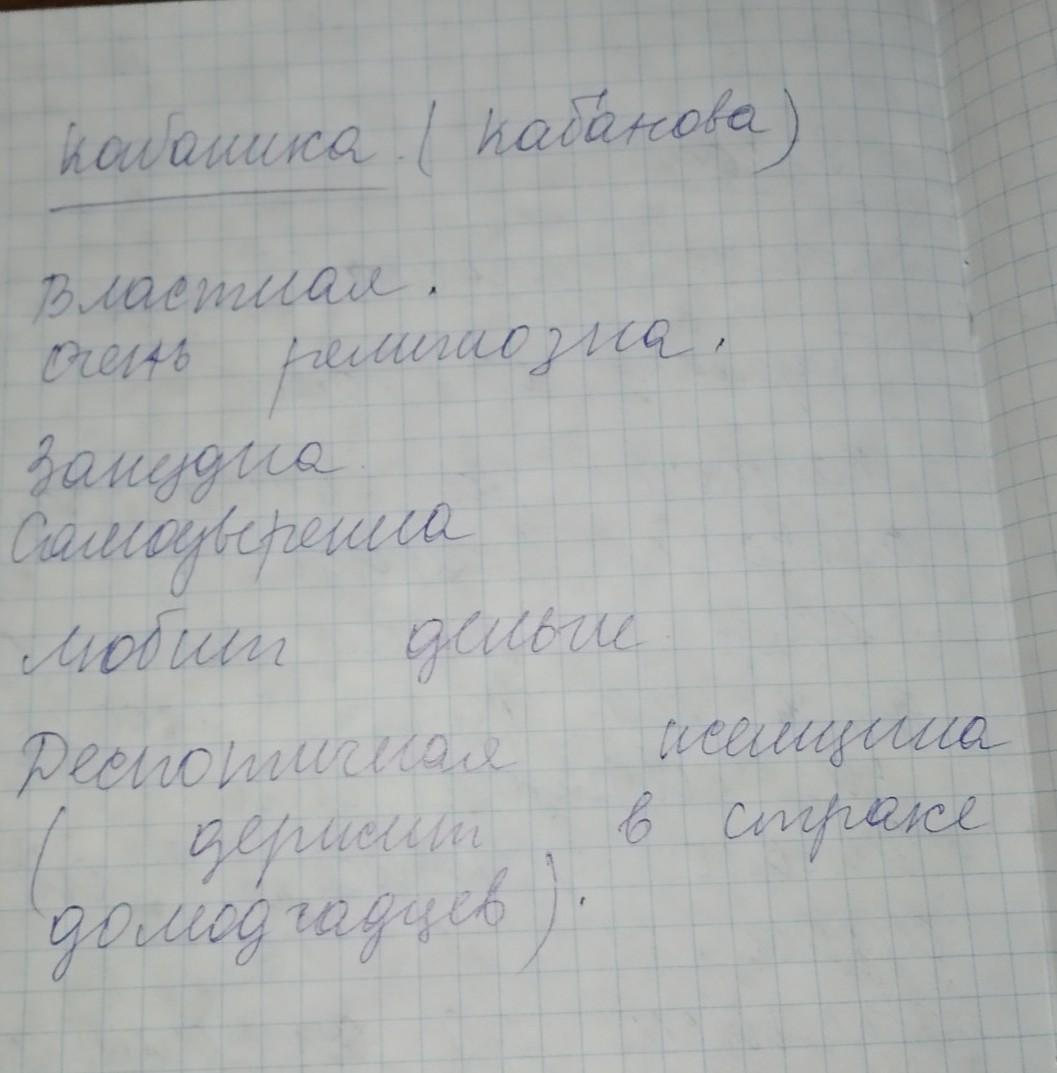 Кабаниха. (Кабанова)
Властная.
Очень религиозна.
Занудна
Самоуверенна
Любит деньги
Деспотичная женщина
(держит в страхе
домодчадцев).